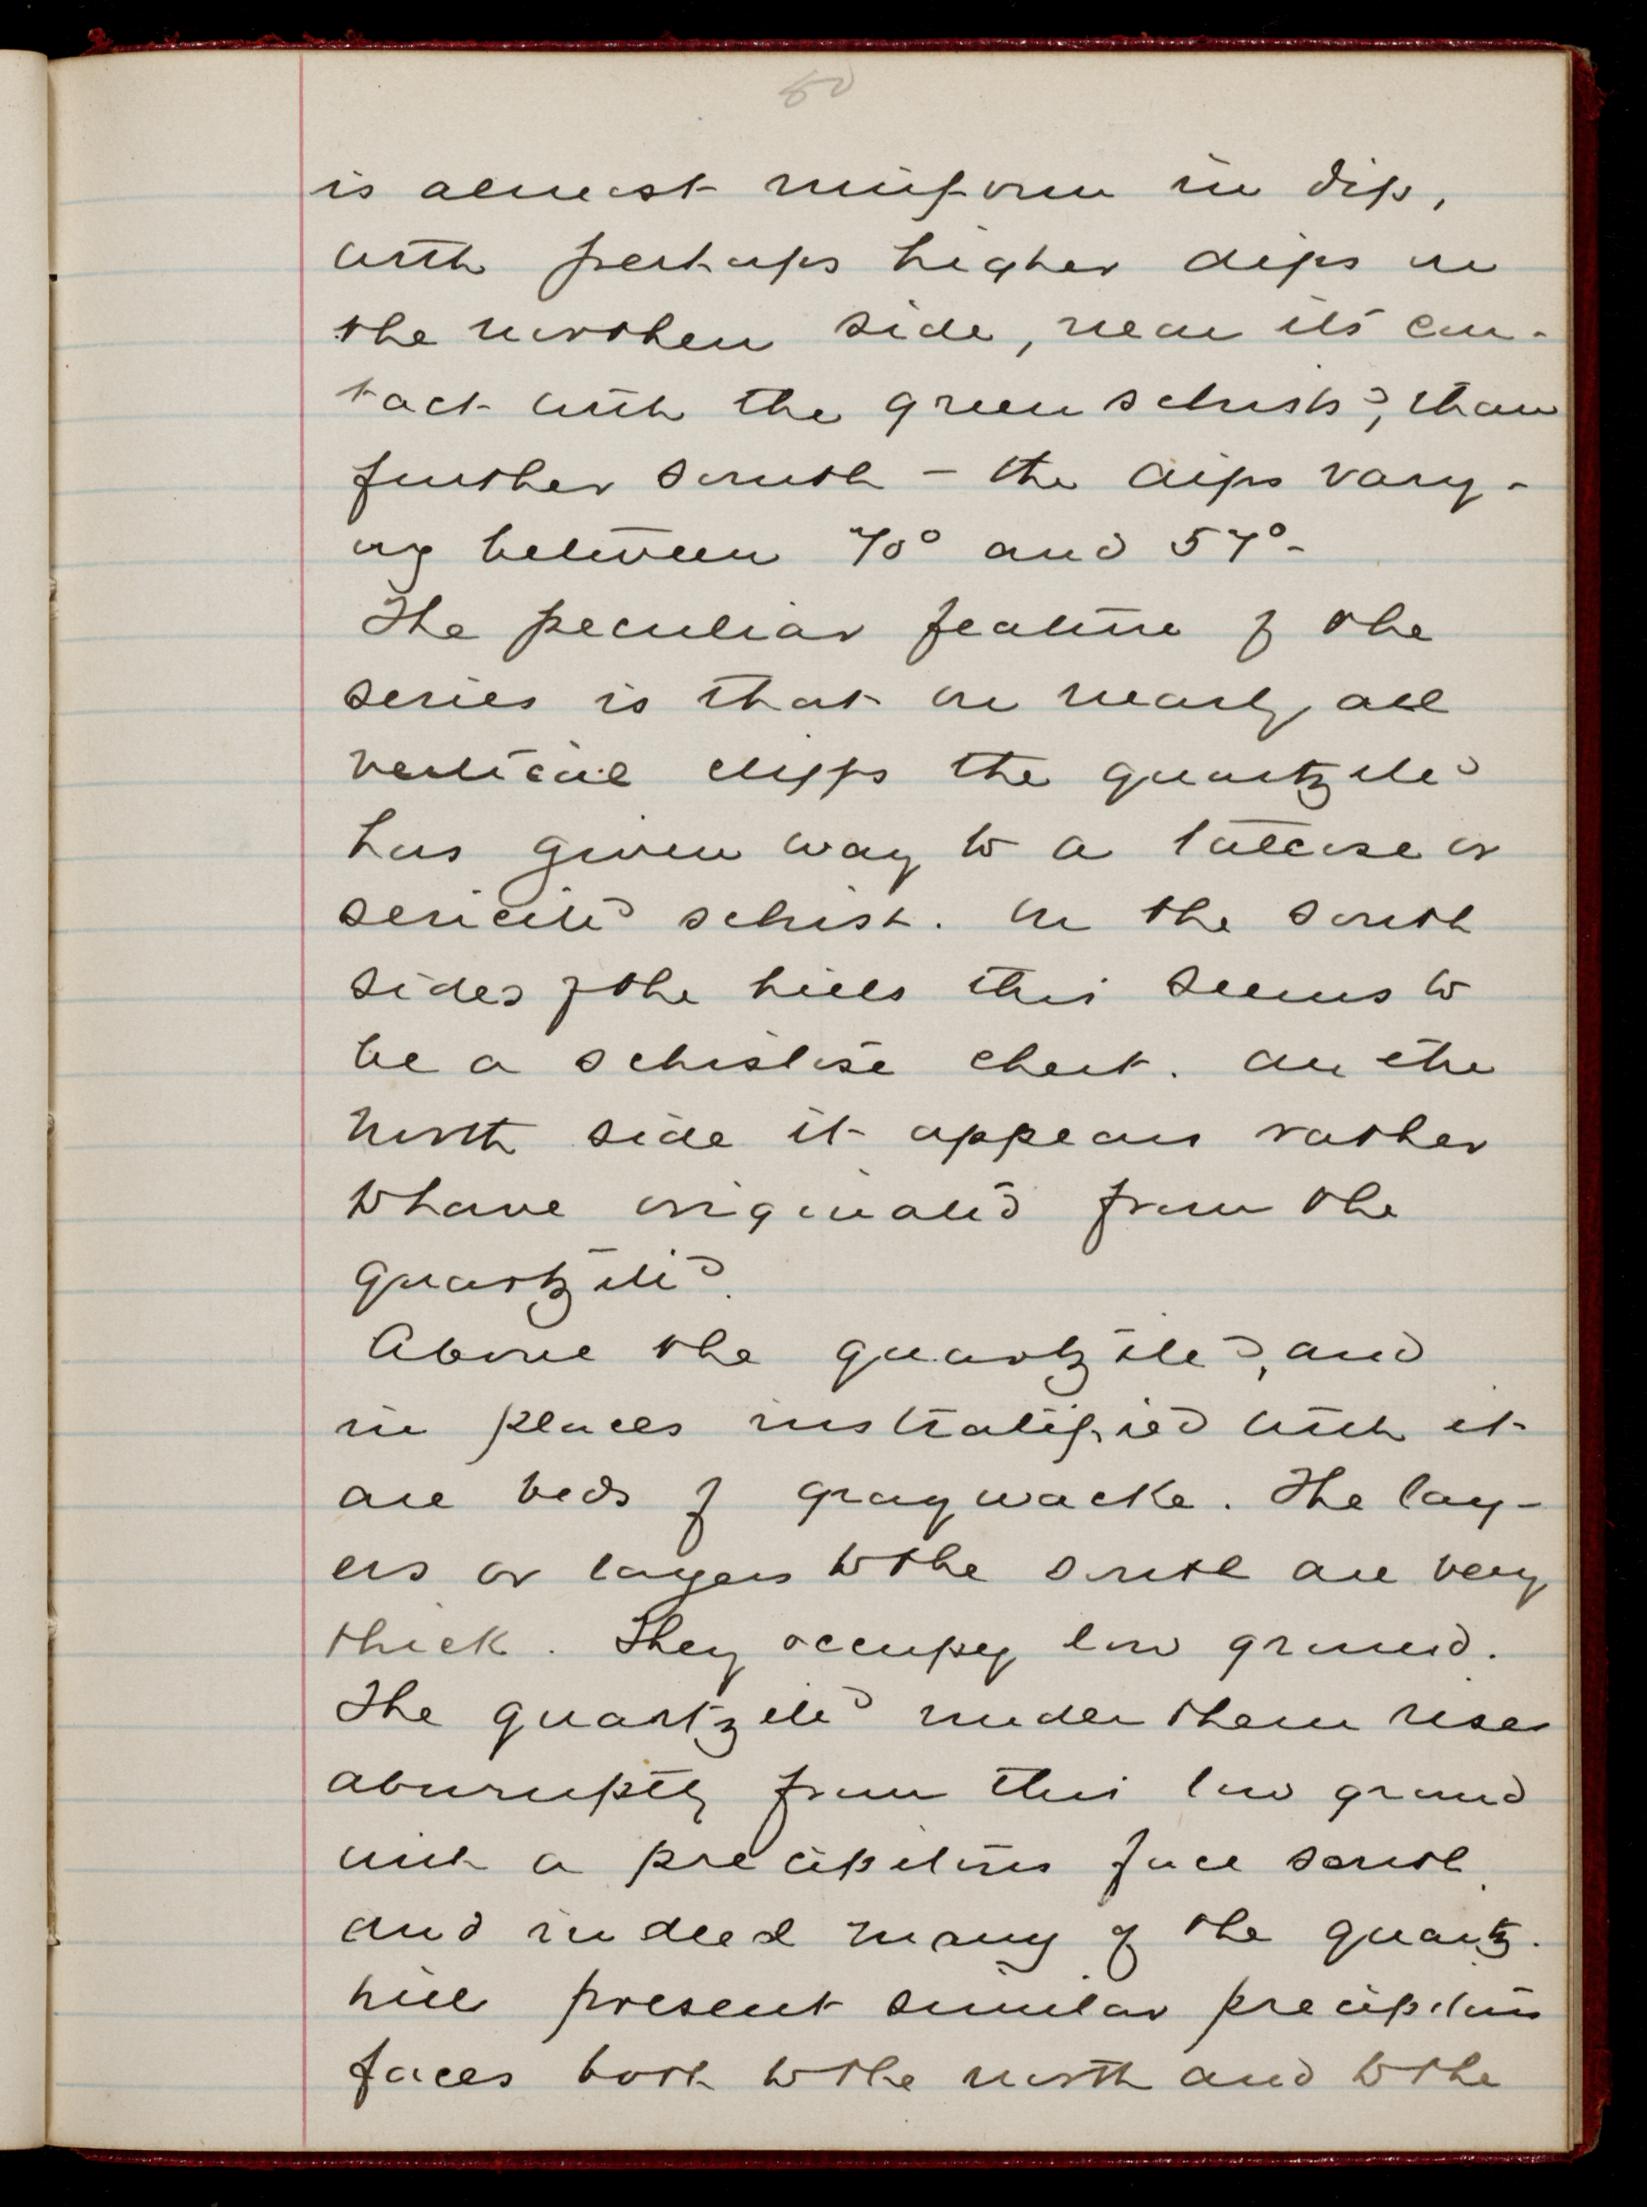 50
is almost uniform in dip,
with perhaps higher dips on
the northern side, near its con-
tact with the green schists, than
further south – the dips vary-
ing between 70° and 57°-
The peculiar feature of the
series is that on nearly all
vertical cliffs the quartzite
has given way to a talcose or
sericite schist. On the south
sides of the hills this seems to
be a schistose chert. On the
north side it appears rather
to have originated from the
quartzite.
Above the quartzite, and
in places instratified with it
are beds of graywacke. The lay-
ers or layers to the south are very
thick. They occupy low ground.
The quartzite under them rises
abruptly from this low ground
with a precipitous face south.
and indeed many of the quartz.
hills present similar precipitous
faces both to the north and to the